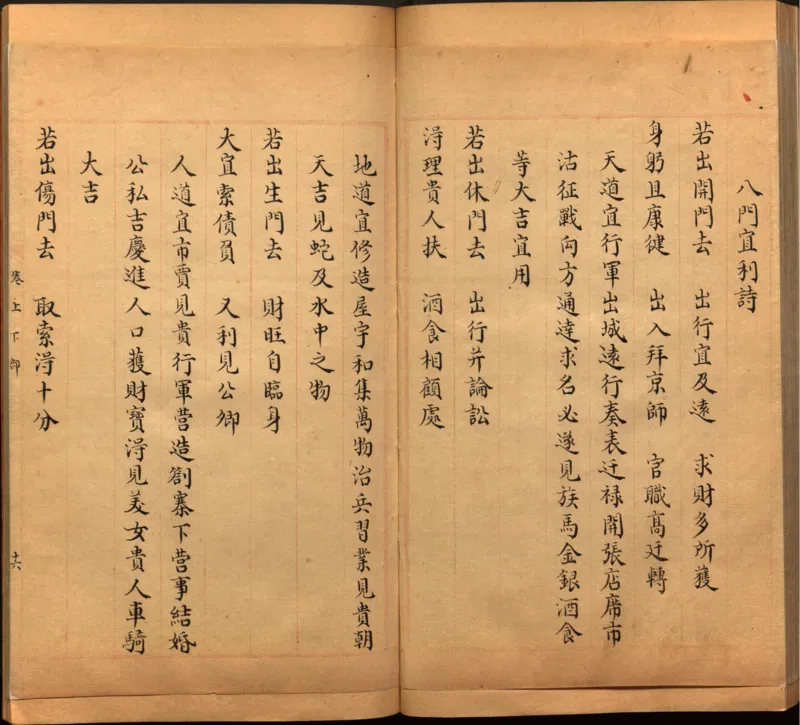 八門宜利詩
若出開門去　出行宜及遠　求財多所獲
身躬且康健　出入拜京師　官職高迁轉
天道宜行軍出城遠行奏表迁禄開張店席市
沽征戰向方通達求名必遂見族馬金銀酒食
等大吉宜用
若出休門去　出行并論訟
淂理貴人扶　酒食相顧處
地道宜修造屋宇和集萬物治兵習業見貴朝
天吉見蛇及水中之物
若出生門去　財旺自臨身
大宜索債負　又利見公卿
人道宜市賈見貴行軍营造劄寨下营事結婚
公私吉慶進人口獲財寶淂見美女貴人車騎
大吉
若出傷門去　取索淂十分
卷上下部
十六